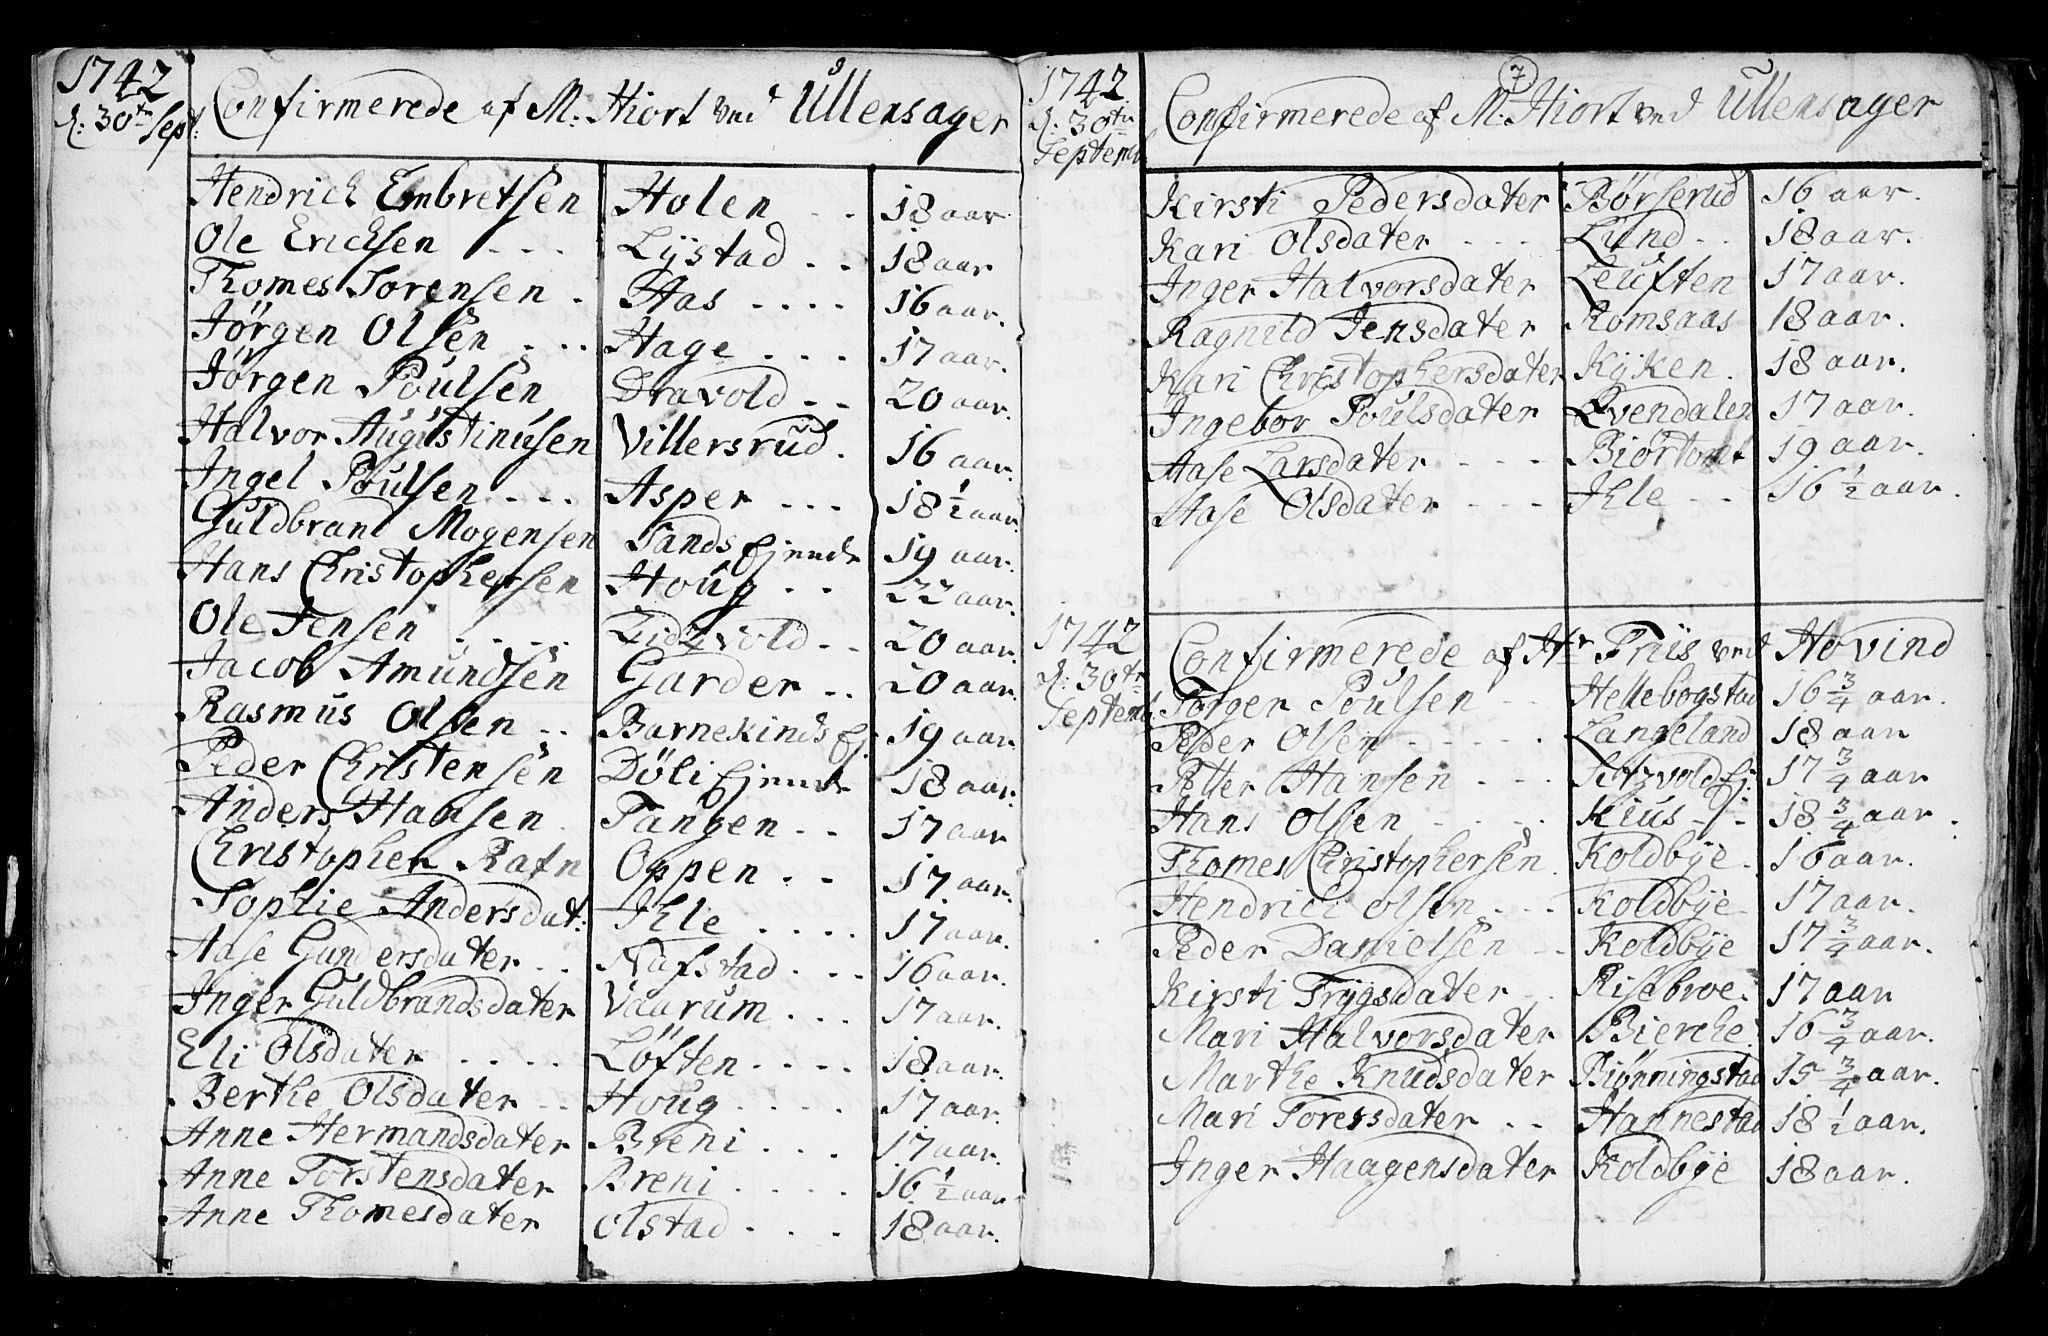 1742
d: 30te Sept:
Confirmerede af M: Hiort ved Ullensager
Hendrich Embretsen Holen - - 18 aar
Ole Ericksen - - - Lÿstad - - 18 aar
Thomes Sorensen - Aas - - - - 16 aar.
Jörgen Olsen - - - Hage - - - 17 aar.
Jörgen Poulsen Dravold - - 20 aar.
Halvor Augustinusen Villersrud. 16 aar.
Ingel Poulsen - - - Asper - - - 18 1/2 aar
Guldbrand Mogensen Sands Ejende 19 aar.
Hans Christophersen Houg - - 22 aar.
Ole Jensen - - - - Eidzvold - - 20 aar.
Jacob Amundsen Garder - - 20 aar
Rasmus Olsen - - Barnekinds Ej: 19 aar
Peder Christensen Döli Ejende 18 aar.
Anders Hansen Tangen - - 17 aar
Christopher Rafn Oppen - - 17 aar.
Sophie Andersdat: Ihle - - - - 17 aar.
Aase Gundersdater - - Nafstad - - - 16 aar.
Inger Guldbrandsdater Vaarum - - - 17 aar.
Eli Olsdater - - - - Löften - - - - 18 aar.
Berthe Olsdater - - Houg - - - - 17 aar.
Anne Hermandsdater Breni - - - 17 aar.
Anne Torstensdater Breni - - - - 16 1/2 aar
Anne Thomesdater Olstad - - - - 18 aar.
7
1742
d: 30te
Septemb
Confirmerede af M: Hiort ved Ullensager
Kirsti Pedersdater Börserud 16 aar.
Kari Olsdater - - - Lund - - 18 aar.
Inger Halvorsdater Leuften 17 aar.
Ragnild Jensdater Romsaas 18 aar.
Kari Christophersdater Kÿken. 18 aar.
Ingebor Poulsdater Qvendalen 17 aar.
Aase Larsdater - - - Biörtomt 19 aar.
Aase Olsdater - - - Ihle - - 16 1/2 aar.
1742
d: 30te
Septemb
Confirmerede af Hr Friis ved Hovind
Torger Poulsen - - Hellebogstad 16 3/4 aar.
Peder Olsen - - - - - Langeland 18 aar
Petter Hansen - - - Eidzvold Ej: 17 3/4 aar
Hans Olsen - - - - - Kius - - 18 3/4 aar.
Thomes Christophersen Koldbÿe. 16 aar.
Hendrich Olsen - - - Koldbÿe 17 aar.
Peder Danielsen - - Koldbÿe 17 3/4 aar.
Kirsti Trÿgsdater - Risebroe. 17 aar
Mari Halvorsdater Bierche. 16 3/4 aar.
Marthe Knudsdater Biönningstad 15 3/4 aar.
Mari Toresdater - - Hannestad 18 1/2 aar.
Inger Haagensdater Koldbÿe 18 aar.